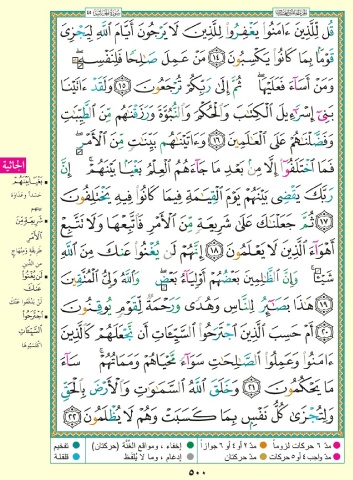 قُل لِّلَّذِينَ ءَامَنُوا۟ يَغْفِرُوا۟ لِلَّذِينَ لَا يَرْجُونَ أَيَّامَ ٱللَّهِ لِيَجْزِىَ
قَوْمًۢا بِمَا كَانُوا۟ يَكْسِبُونَ ١٤ مَنْ عَمِلَ صَـٰلِحًا فَلِنَفْسِهِۦ ۖ
وَمَنْ أَسَآءَ فَعَلَيْهَا ۖ ثُمَّ إِلَىٰ رَبِّكُمْ تُرْجَعُونَ ١٥ وَلَقَدْ ءَاتَيْنَا
بَنِىٓ إِسْرَٰٓءِيلَ ٱلْكِتَـٰبَ وَٱلْحُكْمَ وَٱلنُّبُوَّةَ وَرَزَقْنَـٰهُم مِّنَ ٱلطَّيِّبَـٰتِ
وَفَضَّلْنَـٰهُمْ عَلَى ٱلْعَـٰلَمِينَ ١٦ وَءَاتَيْنَـٰهُم بَيِّنَـٰتٍ مِّنَ ٱلْأَمْرِ ۖ
فَمَا ٱخْتَلَفُوٓا۟ إِلَّا مِنۢ بَعْدِ مَا جَآءَهُمُ ٱلْعِلْمُ بَغْيًۢا بَيْنَهُمْ ۚ إِنَّ
رَبَّكَ يَقْضِى بَيْنَهُمْ يَوْمَ ٱلْقِيَـٰمَةِ فِيمَا كَانُوا۟ فِيهِ يَخْتَلِفُونَ
١٧ ثُمَّ جَعَلْنَـٰكَ عَلَىٰ شَرِيعَةٍ مِّنَ ٱلْأَمْرِ فَٱتَّبِعْهَا وَلَا تَتَّبِعْ
أَهْوَآءَ ٱلَّذِينَ لَا يَعْلَمُونَ ١٨ إِنَّهُمْ لَن يُغْنُوا۟ عَنكَ مِنَ ٱللَّهِ
شَيْـًٔا ۚ وَإِنَّ ٱلظَّـٰلِمِينَ بَعْضُهُمْ أَوْلِيَآءُ بَعْضٍ ۖ وَٱللَّهُ وَلِىُّ ٱلْمُتَّقِينَ
١٩ هَـٰذَا بَصَـٰٓئِرُ لِلنَّاسِ وَهُدًى وَرَحْمَةٌ لِّقَوْمٍ يُوقِنُونَ
٢٠ أَمْ حَسِبَ ٱلَّذِينَ ٱجْتَرَحُوا۟ ٱلسَّيِّـَٔاتِ أَن نَّجْعَلَهُمْ كَٱلَّذِينَ
ءَامَنُوا۟ وَعَمِلُوا۟ ٱلصَّـٰلِحَـٰتِ سَوَآءً مَّحْيَاهُمْ وَمَمَاتُهُمْ ۚ سَآءَ
مَا يَحْكُمُونَ ٢١ وَخَلَقَ ٱللَّهُ ٱلسَّمَـٰوَٰتِ وَٱلْأَرْضَ بِٱلْحَقِّ
وَلِتُجْزَىٰ كُلُّ نَفْسٍۭ بِمَا كَسَبَتْ وَهُمْ لَا يُظْلَمُونَ ٢٢
الجاثية
بَغْيًۢا بَيْنَهُمْ
حسداً وعداوة
بينهم
شَرِيعَةٍ مِّنَ
ٱلْأَمْرِ
طريقة ومنهاج
من الدين
لَن يُغْنُوا۟
عَنكَ
لن يدفعوا عنك
ٱجْتَرَحُوا۟
ٱلسَّيِّـَٔاتِ
اكتسبوها
مدّ ٦ حركات لزوماً مدّ ٢ أو ٤ أو ٦ جوازاً إخفاء، ومواقع الغُنَّة (حركتان) تفخيم
مدّ واجب ٤ أو ٥ حركات مدّ حركتان إدغام، وما لا يُلفظ قلقلة
٥٠٠